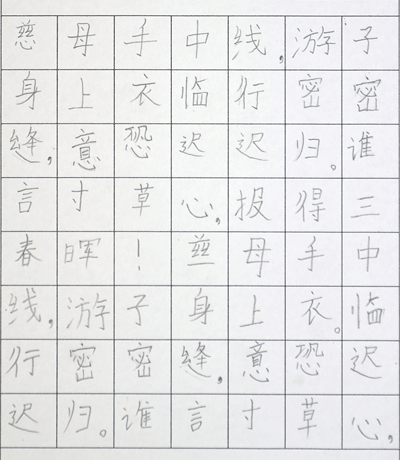 慈母手中线,游子
身上衣临行密密
缝,意恐迟迟归。谁
言寸草心,报得三
春晖!慈母手中
线,游子身上衣。临
行密密缝,意恐迟
迟归。谁言寸草心,